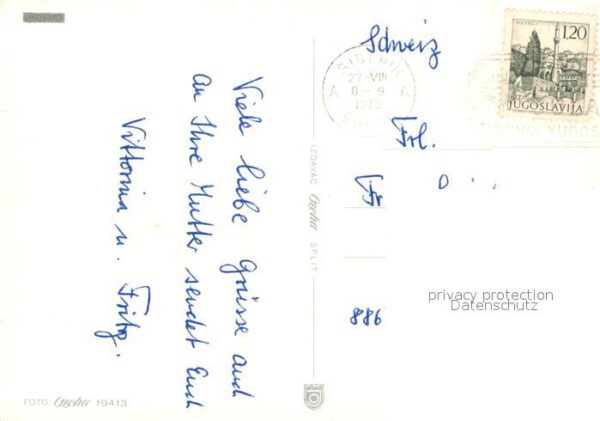 Viele liebe Grüsse auch
an Ihre Mutter sendet Euch
Vittorina u. Fritz.
FOTO Ozeha 19413
IZDAVAČ Ozeha SPLIT
ŠIBENIK
27-VIII
8-9
1975
A A
POČITELJ
1.20
JUGOSLAVIJA
Schweiz
Frl.
D
886
privacy protection
Datenschutz